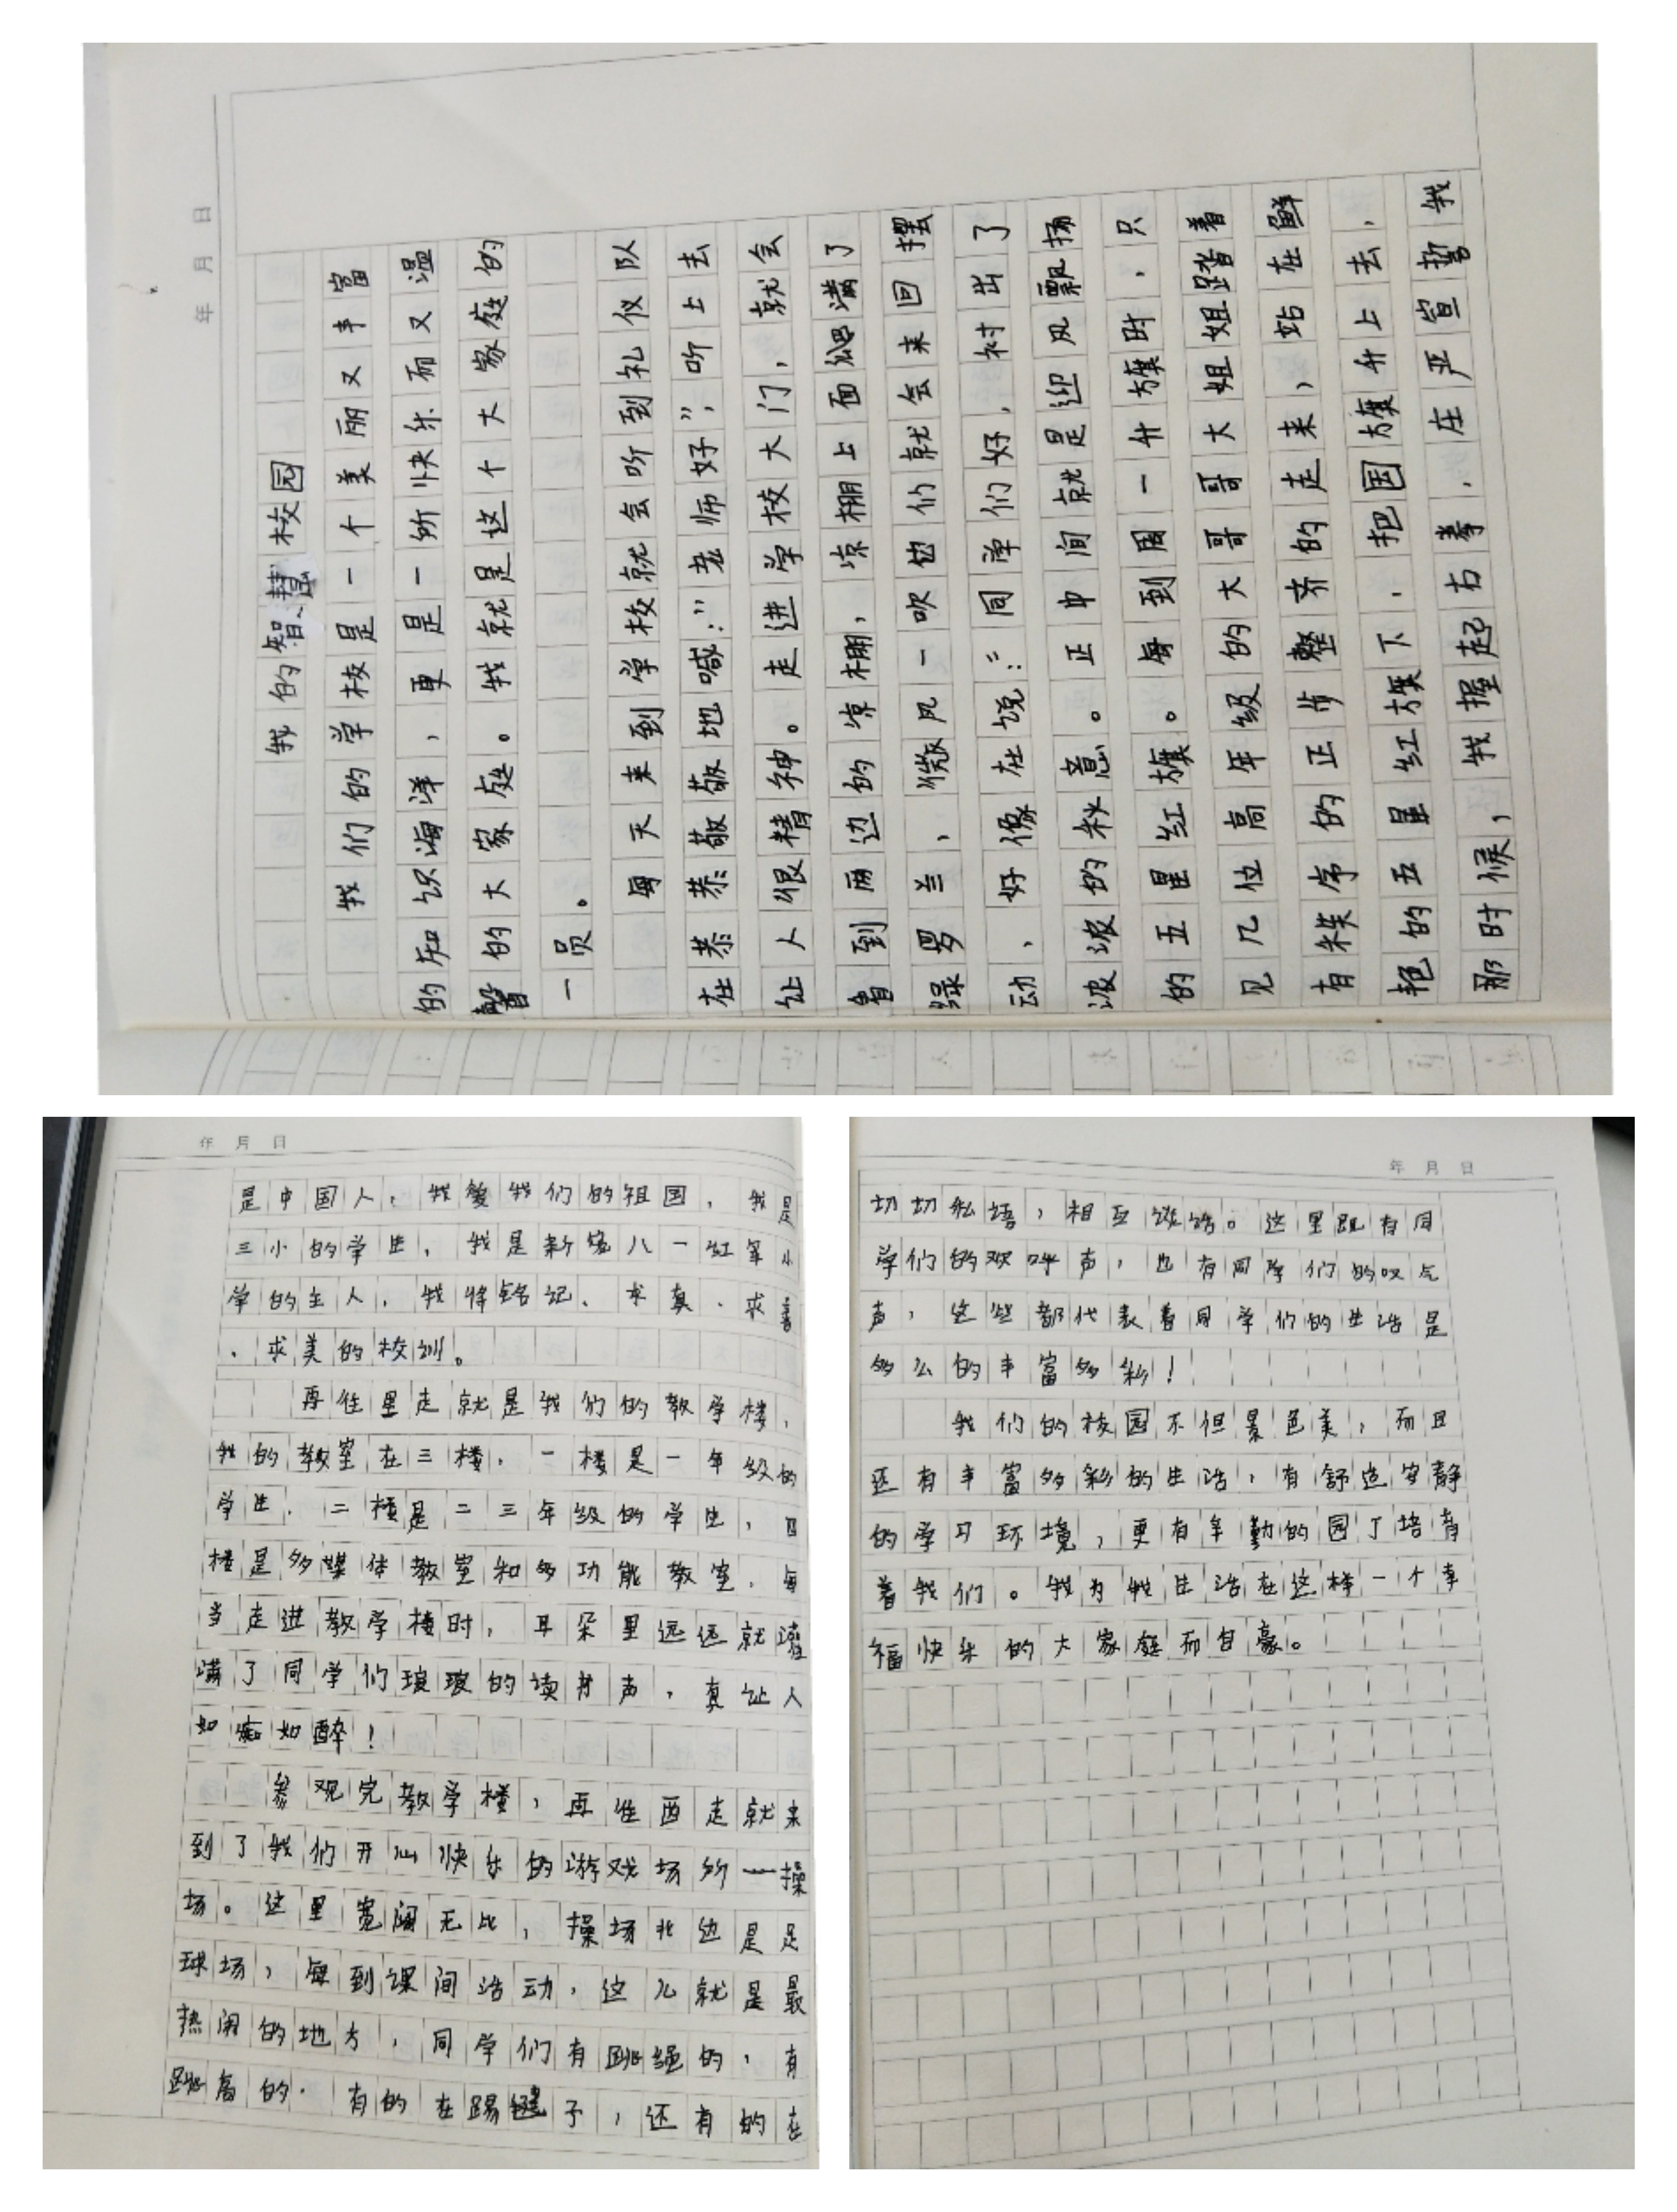 年 月 日
我的智慧校园
我们的学校是一个美丽又丰富
的知识海洋,更是一所快乐而又温
馨的大家庭。我就是这个大家庭的
一员。
每天来到学校就会听到礼仪队
在恭恭敬敬地喊:“老师好”,听上去
让人很精神。走进学校大门,就会
看到两边的凉棚,凉棚上面爬满了
绿萝兰、微风一吹他们就会来回摆
动、好像在说:“同学们好,衬出了
浓浓的秋意。正中间就是迎风飘扬
的五星红旗。每到周一升旗时,只
见几位高年级的大哥哥大姐姐踏着
有秩序的正步整齐的走来,站在鲜
艳的五星红旗下,把国旗升上去,
那时候,我握起右拳,在严宣誓我
年 月 日
是中国人,我爱我们的祖国,我是
三小的学生,我是新绛八一红军小
学的主人,我将铭记、求真、求善
、求美的校训。
再往里走就是我们的教学楼,
我的教室在三楼,一楼是一年级的
学生,二楼是二三年级的学生,四
楼是多媒体教室和多功能教室,每
当走进教学楼时,耳朵里远远就灌
满了同学们琅琅的读书声,真让人
如痴如醉!
参观完教学楼,再往西走就来
到了我们开心快乐的游戏场所一操
场。这里宽阔无比,操场北边是足
球场,每到课间活动,这儿就是最
热闹的地方,同学们有跳绳的,有
跳高的,有的在踢毽子,还有的在
年 月 日
切切私语,相互谈话。这里既有同
学们的欢呼声,也有同学们的叹气
声,这些都代表着同学们的生活是
多么的丰富多彩!
我们的校园不但景色美,而且
还有丰富多彩的生活,有舒适安静
的学习环境,更有辛勤的园丁培育
着我们。我为我生活在这样一个幸
福快乐的大家庭而自豪。